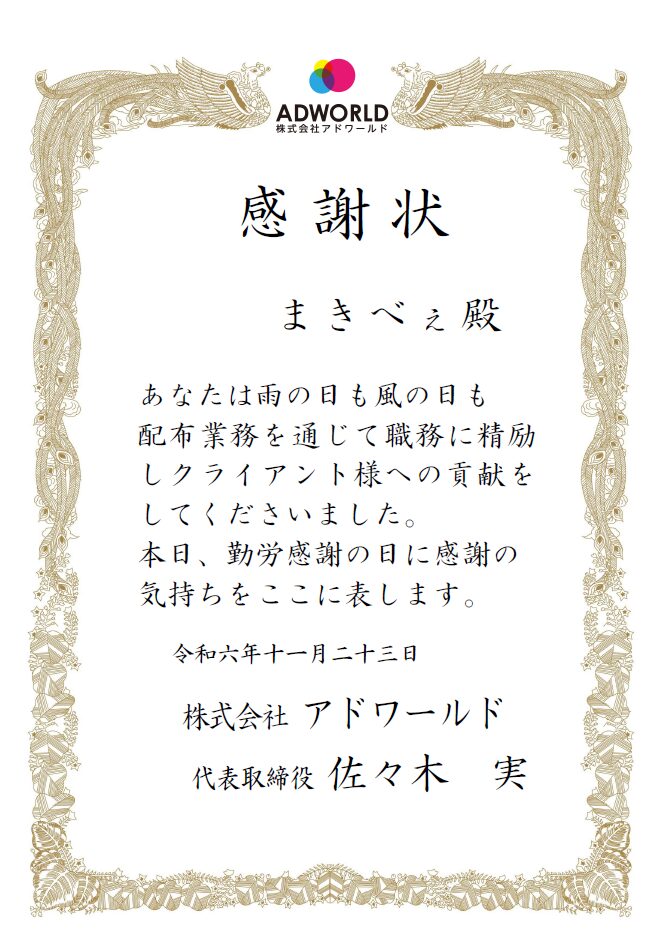 ADWORLD
株式会社アドワールド
感謝状
まきべぇ殿
あなたは雨の日も風の日も
配布業務を通じて職務に精励
しクライアント様への貢献を
してくださいました。
本日、勤労感謝の日に感謝の
気持ちをここに表します。
令和六年十一月二十三日
株式会社 アドワールド
代表取締役 佐々木　実